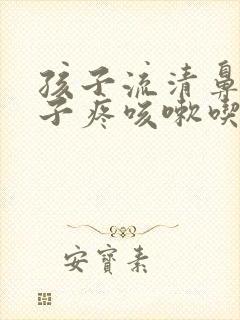 孩子流清鼻
子疼咳嗽喫
安寶素